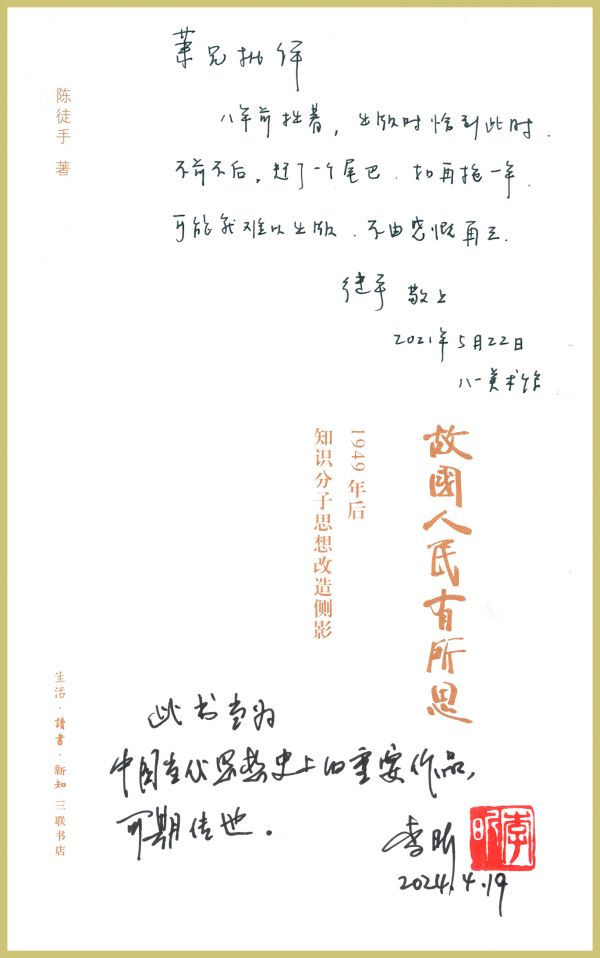 叶兄批评
八年前拙著，出版时恰到此时．
不前不后，赶了一个尾巴．如再拖一年
可能就难以出版．不由感慨再三．
徒手 敬上
2021年5月22日
八一美术馆
陈徒手 著
故國人民有所思
1949年后
知识分子思想改造侧影
生活·讀書·新知 三联书店
此书当为
中国当代思想史上的重要作品，
可期传也。
李昕
2024.4.19
李昕